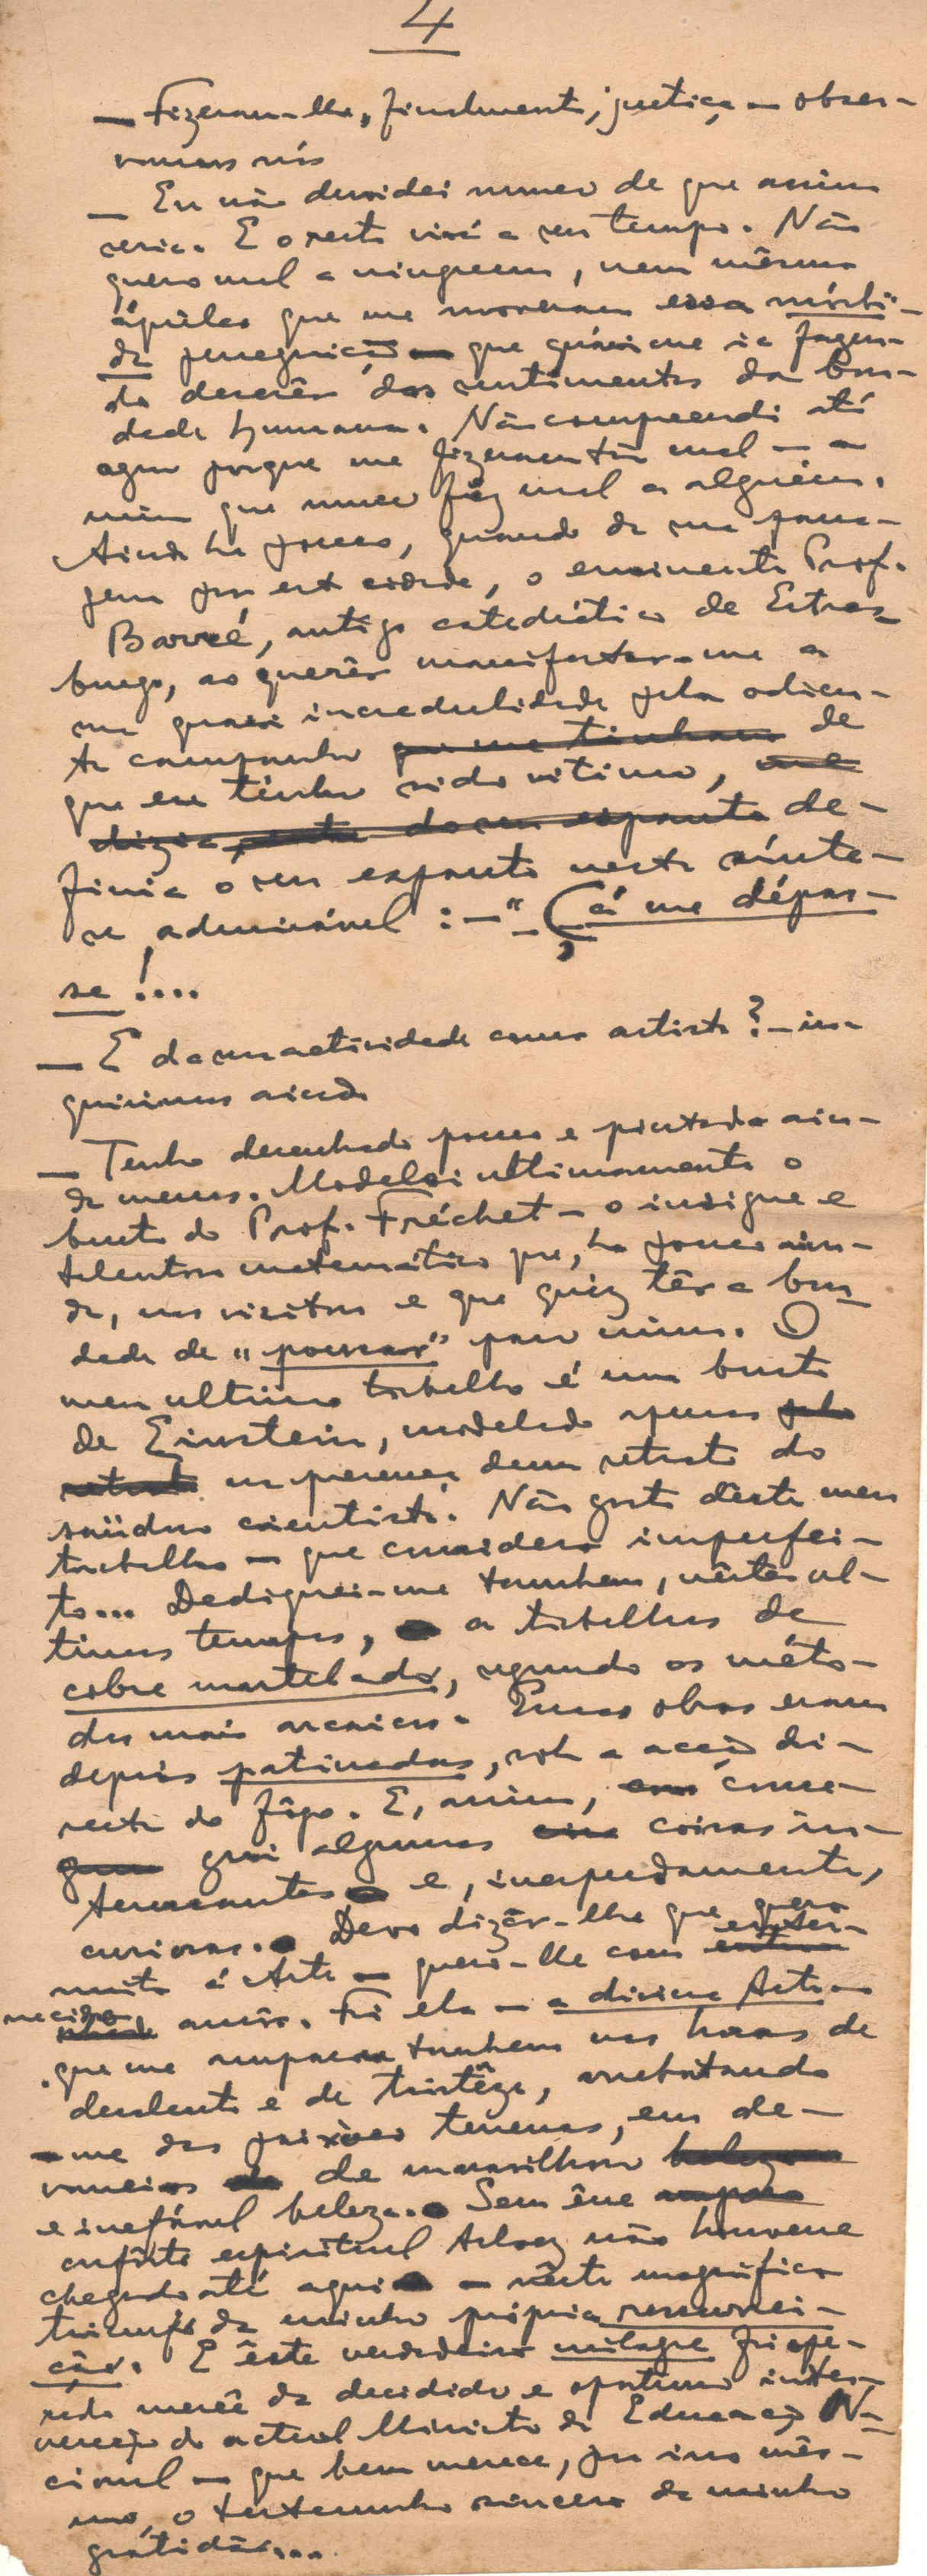 4
— Fizeram-lhe, finalmente, justiça — obser-
vamos nós
— Eu não duvidei nunca de que assim
seria. E o resto virá a seu tempo. Não
quero mal a ninguem, nem mêsmo
áqueles que me moveram essa mórbi-
da perseguição — que quási me ia fazen-
do descrêr dos sentimentos da bon-
dade humana. Não compreendi até
agora porque me fizeram tanto mal — a
mim que nunca fiz mal a alguém.
Ainda ha pouco, quando da sua passa-
gem por esta cidade, o eminente Prof.
Barré, antigo catedrático de Estras-
burgo, ao querêr manifestar-me a
sua quasi incredulidade pela odien-
ta campanha que me tinham de
que eu tinha sido vitima, me
dizia, do seu espanto de-
finia o seu espanto nesta sínte-
se admirável: — "Çá me dépas-
se!....
— E da sua actividade como artista? — in-
quirimos ainda
— Tenho desenhado pouco e pintado ain-
da menos. Modelei ultimamente o
busto do Prof. Fréchet — o insigne e
talentoso matemático que, ha pouco ain-
da, nos visitou e que quiz têr a bon-
dade de "pousar" para mim. O
meu ultimo trabalho é um busto
de Einstein, modelado apenas pelo
retrato na presença dum retrato do
saüdoso cientista. Não gosto dêste meu
trabalho — que considero imperfei-
to... Dediquei-me tambem, nêstes ul-
timos tempos, a trabalhos de
cobre martelado, segundo os méto-
dos mais arcaicos. Essas obras eram
depois patinadas, sob a acção di-
recta do fôgo. E, assim, conse-
gui algumas coisas in-
teressantes e, inesperadamente,
curiosas. Devo dizêr-lhe que quero
muito á Arte — quero-lhe com enter-
necido amôr. Foi ela — a divina Arte —
que me amparou tambem nas horas de
desalento e de tristêza, arrebatando
-me das paixões terrenas, em de-
vaneios de maravilhosa beleza
e inefável beleza. Sem êsse amparo
confôrto espiritual talvez não houvesse
chegado até aqui — a nêste magnífico
triunfo da minha própria ressurrei-
ção. E êste verdadeiro milagre foi ope-
rado mercê da decidida e oportuna inter-
venção do actual Ministro da Educação Na-
cional — que bem merece, por isso mês-
mo, o testemunho sincero da minha
gratidão...